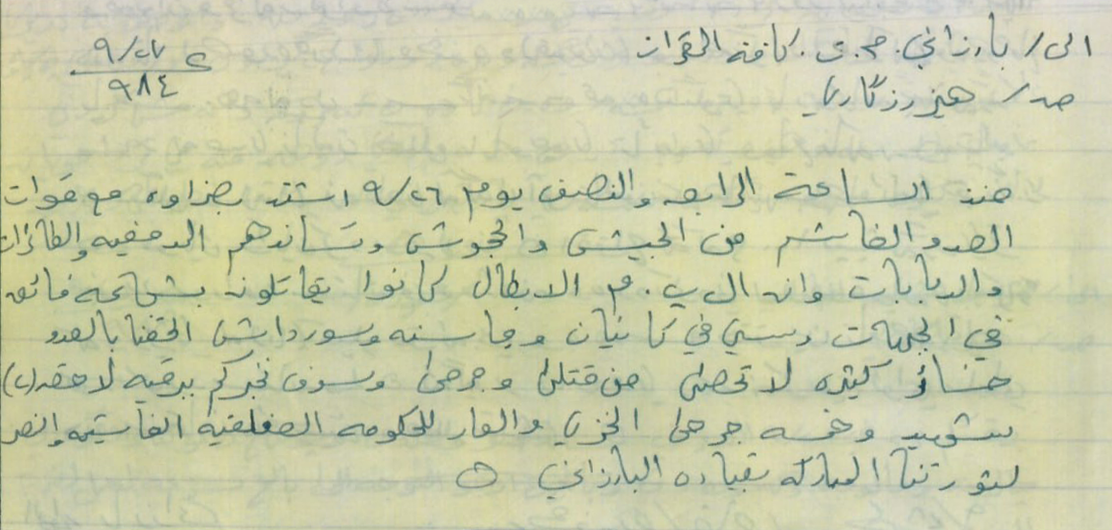 الى/ بارزاني. م.س. كافة المقرات
ع ٩/٢٧
٩٨٤
صد/ هيز رزگاري
منذ الساعة الرابعه والنصف يوم ٩/٢٦ اشتد بضراوه مع قوات
العدو الغاشم من الجيش والجحوش وتساندهم المدفعيه والطائرات
والدبابات وان ال پ. م الابطال كانوا يقاتلون بشجاعه فائقه
في الجبهات دشتي في كانيان وجاسنه وسورداش الحقنا بالعدو
خسائر كثيره لا تحصى من قتلى وجرحى وسوف نخبركم ببرقيه لاحقه (٢)
شهيد وخمسه جرحى الخزي والعار للحكومه العفلقيه الفاشيه والنصر
لثورتنا المباركه بقياده البارزاني